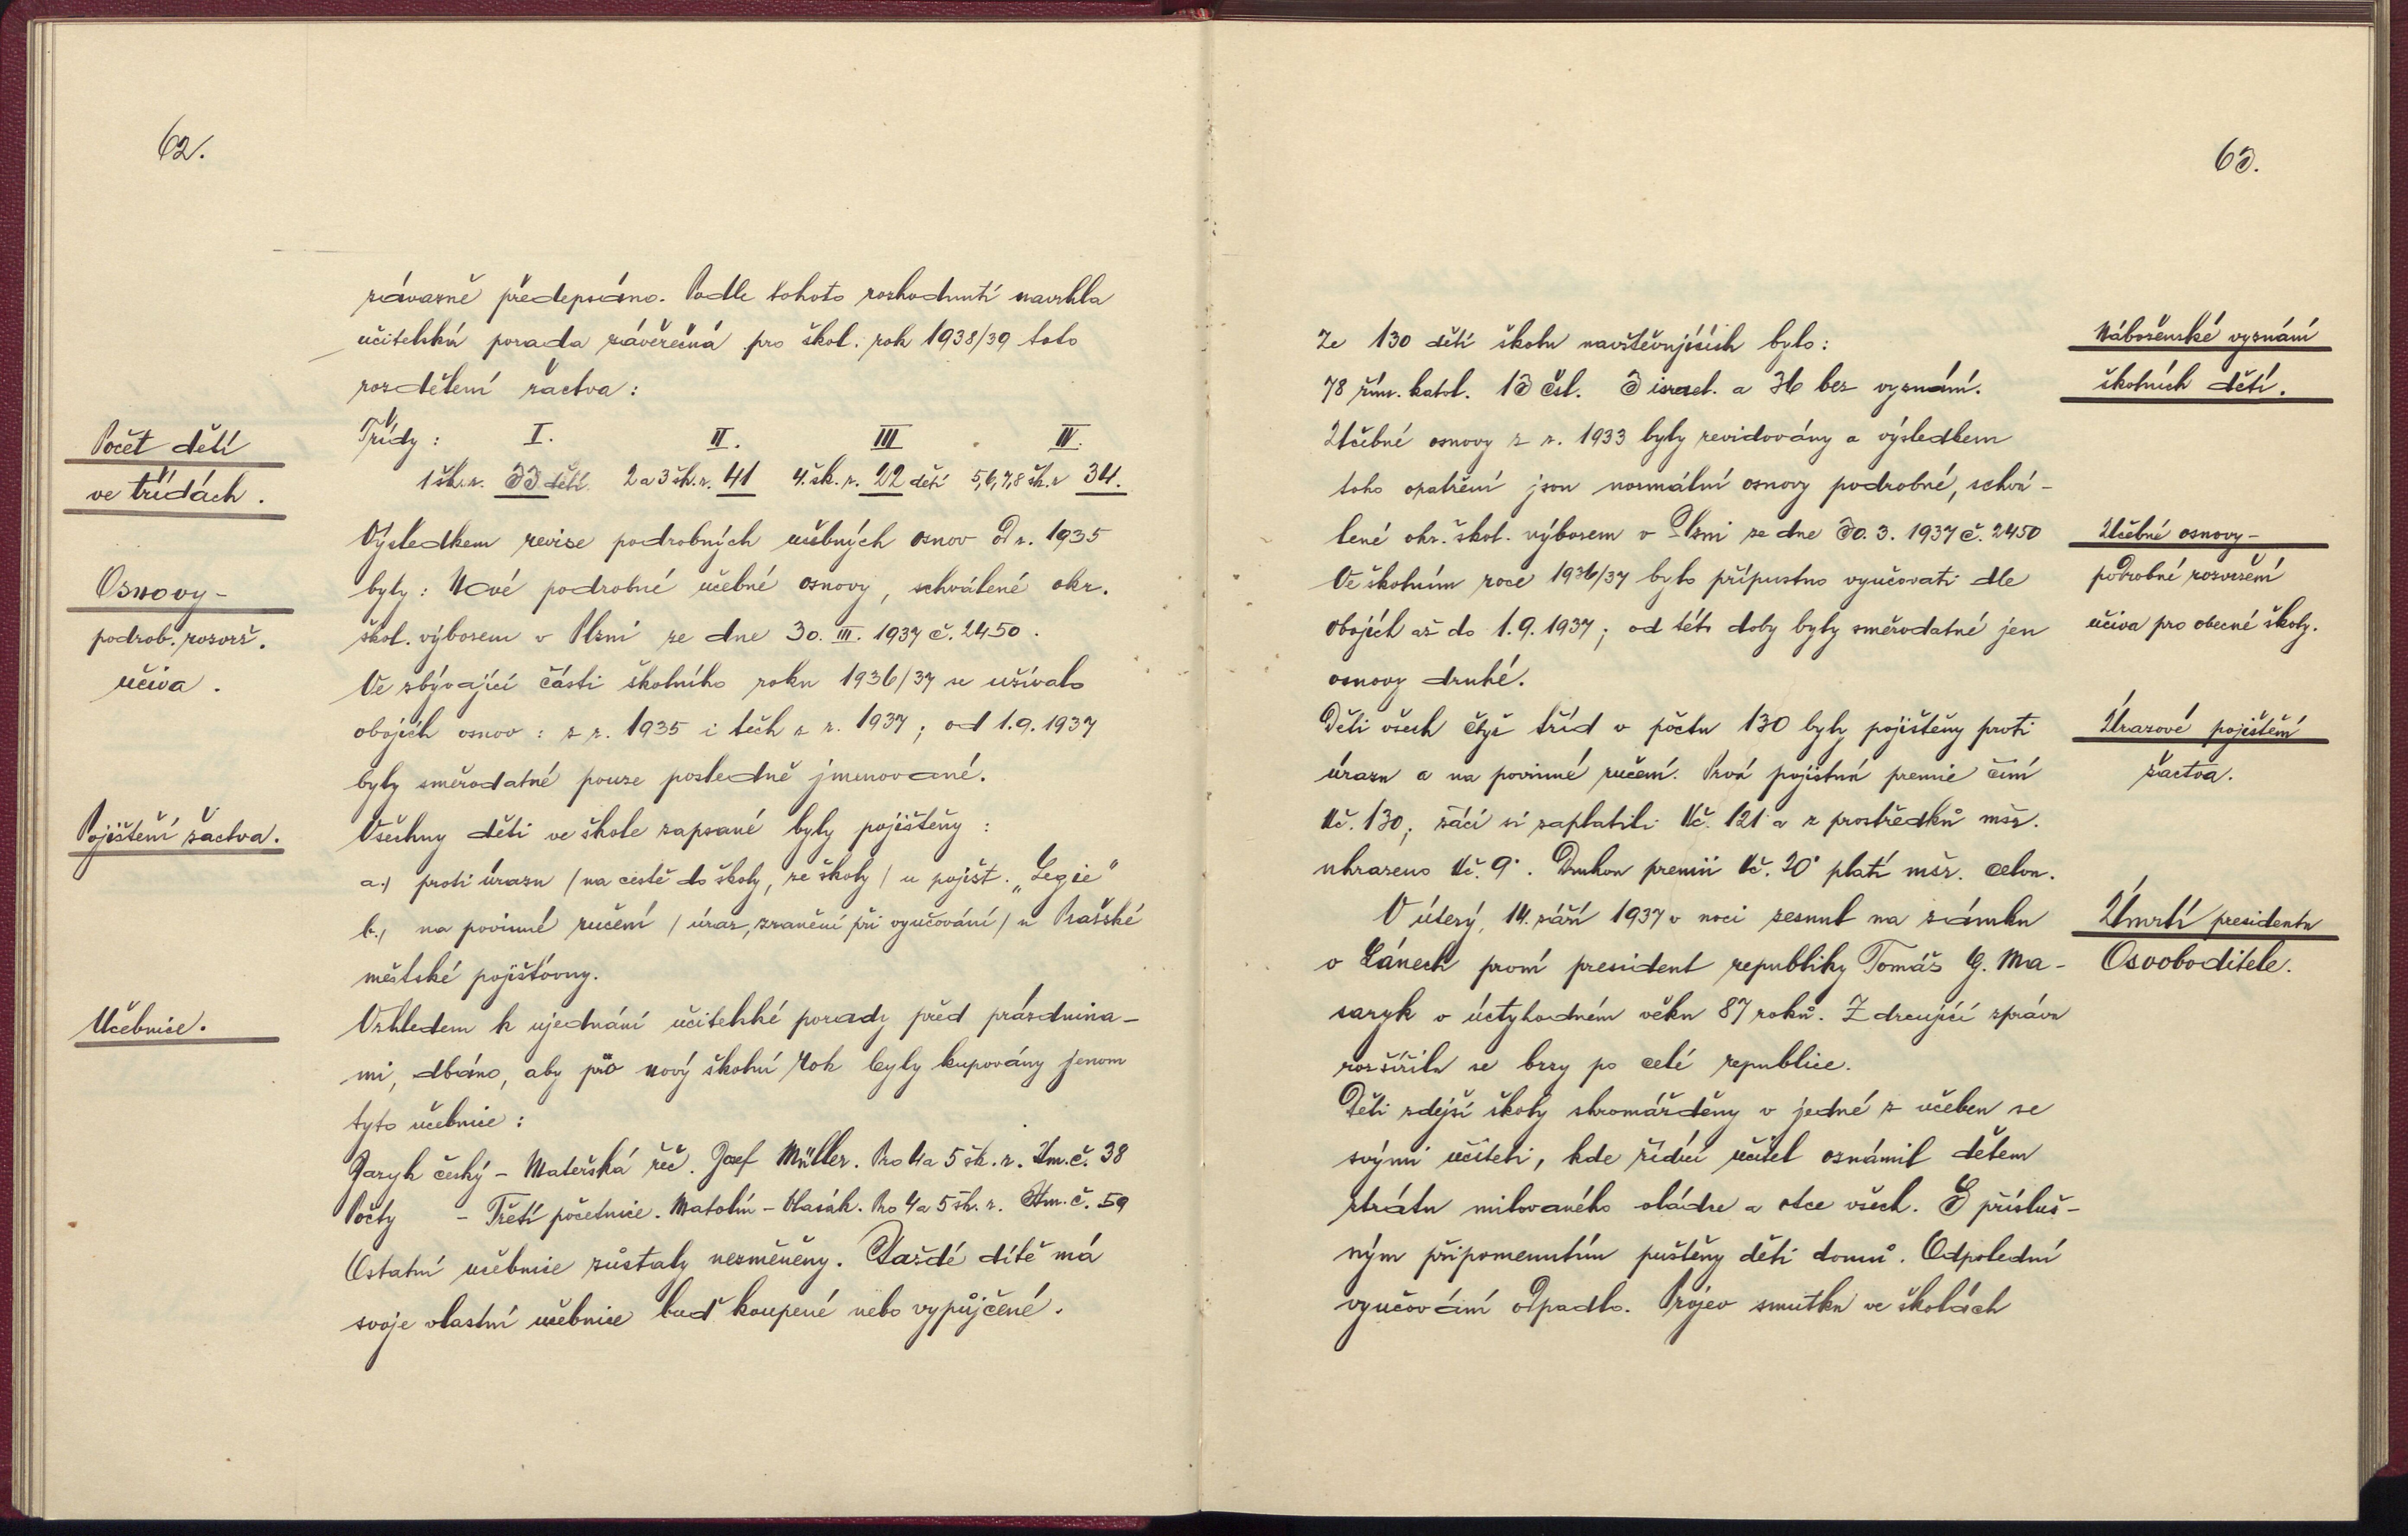 62.
závazně předepsáno. Podle tohoto rozhodnutí navrhla
učitelská porada závěrečná pro škol. rok 1938/39 toto
rozdělení žactva:
Počet dětí
ve třídách.
Třídy: I. II. III IV.
1 šk. r. 33 dětí 2 a 3 šk. r. 41 4. šk. r. 22 dětí 5,6,7,8 šk. r 34.
Výsledkem revise podrobných učebných osnov z r. 1935
Osnovy-
podrob. rozvrž.
učiva.
byly: Nové podrobné učebné osnovy, schválené okr.
škol. výborem v Plzni ze dne 30. III. 1937 č. 2450.
Ve zbývající části školního roku 1936/37 se užívalo
obojích osnov: z r. 1935 i těch z r. 1937; od 1.9.1937
byly směrodatné pouze posledně jmenované.
Pojištění žactva.
Všechny děti ve škole zapsané byly pojištěny:
a.) proti úrazu / na cestě do školy, ze školy / u pojišt. „Legie"
b., na povinné ručení / úraz, zranění při vyučování / u Pražské
městské pojišťovny.
Učebnice.
Vzhledem k ujednání učitelské porady před prázdnina-
mi, dbáno, aby pro nový školní rok byly kupovány jenom
tyto učebnice:
Jazyk český - Mateřská řeč. Josef Müller. Pro 4 a 5 šk. r. Um. č. 38
Počty - Třetí početnice. Matolín - Vlasák. Pro 4 a 5 šk. r. Um. č. 59
Ostatní učebnice zůstaly nezměněny. Každé dítě má
svoje vlastní učebnice buď koupené nebo vypůjčené.
63.
Ze 130 dětí školu navštěvujících bylo:
78 řím. katol. 13 čsl. 3 israel. a 36 bez vyznání.
Náboženské vyznání
školních dětí.
Učebné osnovy z r. 1933 byly revidovány a výsledkem
toho opatření jsou normální osnovy podrobné, schvá-
lené okr. škol. výborem v Plzni ze dne 30. 3. 1937 č. 2450
Ve školním roce 1936/37 bylo přípustno vyučovati dle
obojích až do 1.9.1937; od této doby byly směrodatné jen
osnovy druhé.
Učebné osnovy-
podrobné rozvržení
učiva pro obecné školy.
Děti všech čtyř tříd v počtu 130 byly pojištěny proti
úrazu a na povinné ručení. Prvá pojistná premie činí
Kč. 130; žáci si zaplatili Kč. 121 a z prostředků mšr.
uhrazeno Kč. 9·. Druhou premii Kč. 20· platí mšr. celou.
Úrazové pojištění
žactva.
V úterý, 14. září 1937 v noci zesnul na zámku
v Lánech první president republiky Tomáš G. Ma-
saryk v úctyhodném věku 87 roků. Zdrcující zpráva
rozšířila se brzy po celé republice.
Úmrtí presidenta
Osvoboditele.
Děti zdejší školy shromážděny v jedné z učeben se
svými učiteli, kde řídící učitel oznámil dětem
ztrátu milovaného vládce a otce všech. S přísluš-
ným připomenutím puštěny děti domů. Odpolední
vyučování odpadlo. Projev smutku ve školách